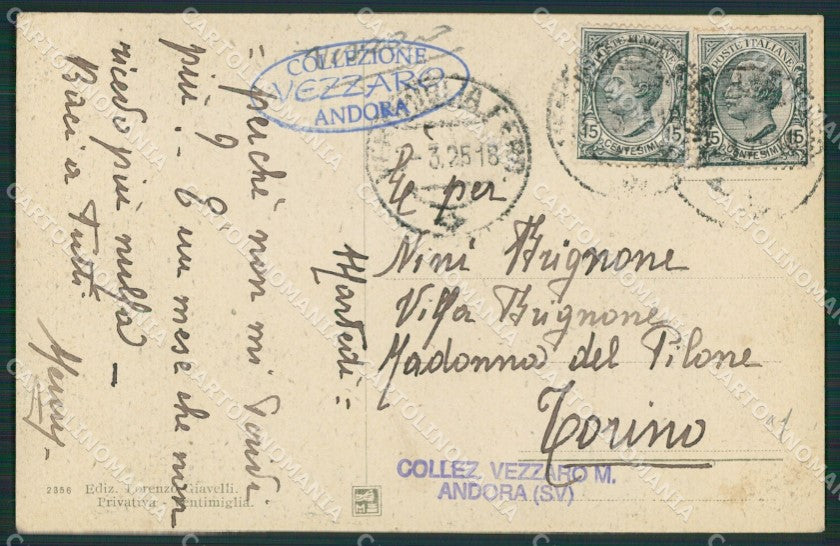 Martedì =
= perchè non mi scrive
più . - È un mese che non
ricevo più nulla -
Baci a tutti
Henry -
COLLEZIONE
VEZZARO
ANDORA
3.25 18
per
Nini Brignone
Villa Brignone
Madonna del Pilone
Torino
POSTE ITALIANE
15 15
CENTESIMI
POSTE ITALIANE
15 15
CENTESIMI
COLLEZ. VEZZARO M.
ANDORA (SV)
2356 Ediz. Lorenzo Giavelli.
Privativa - Ventimiglia.
CARTOLINOMANIA